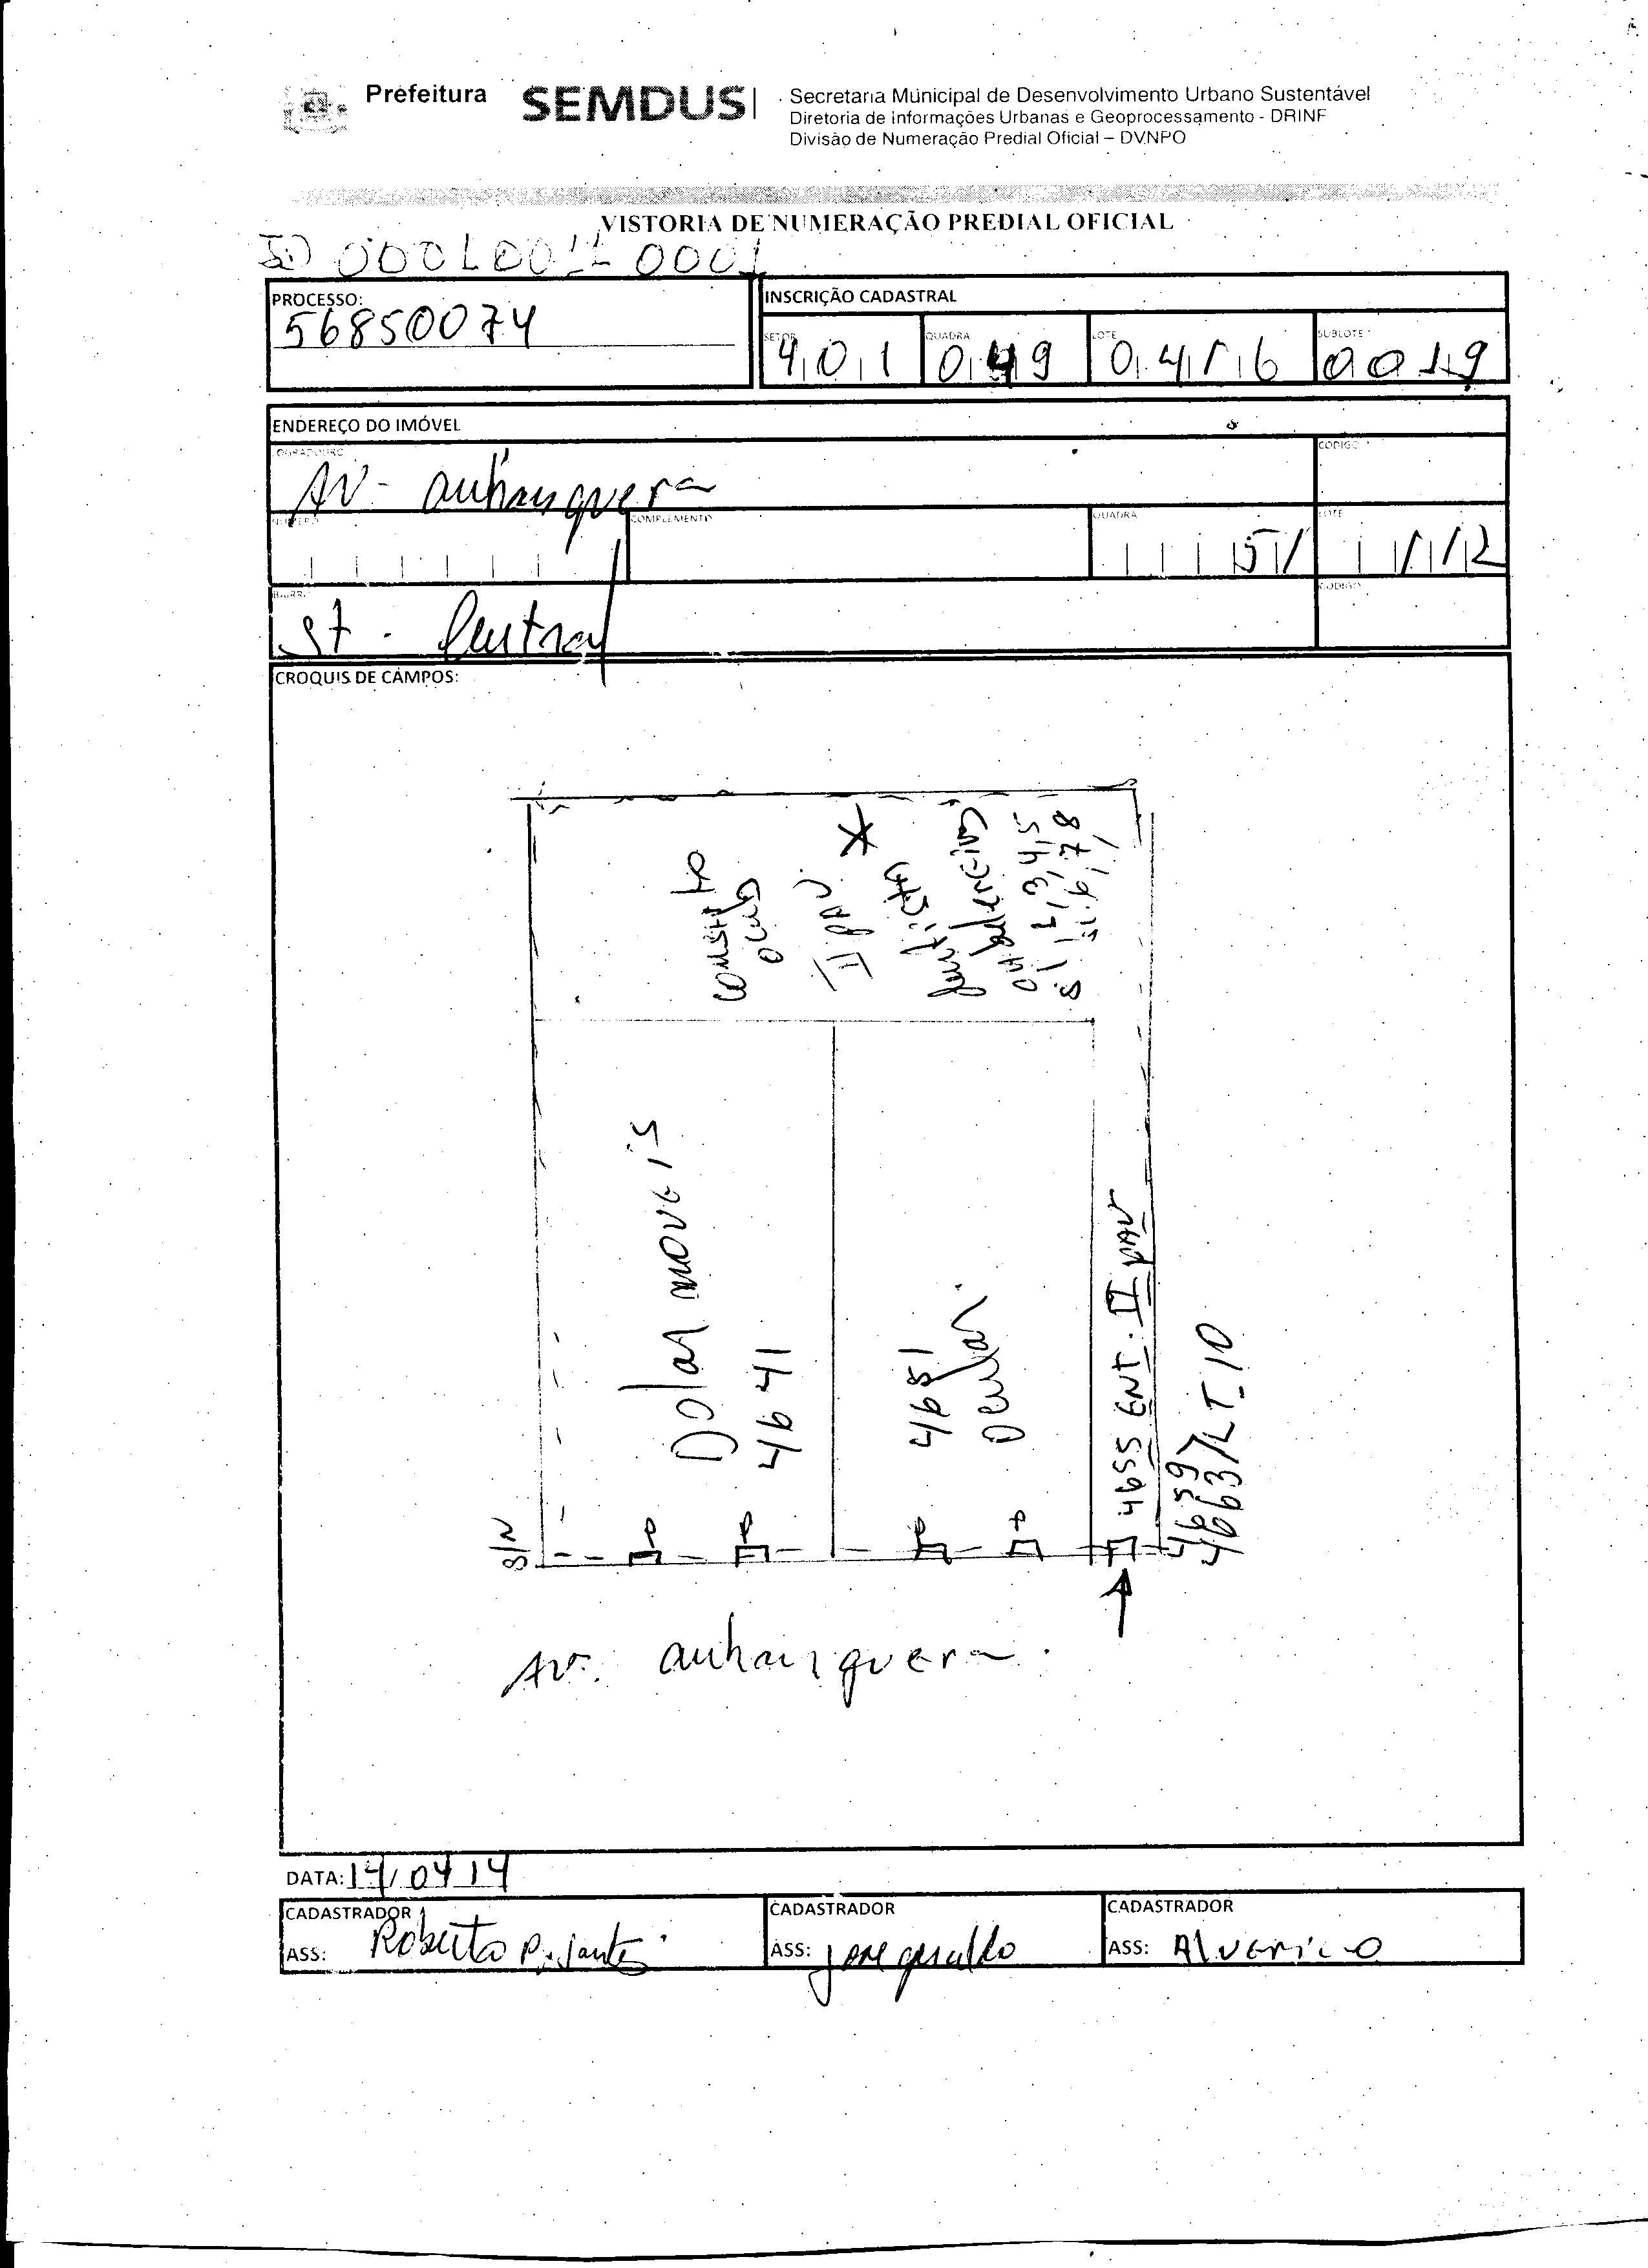 Prefeitura SEMDUS
Secretaria Municipal de Desenvolvimento Urbano Sustentável
Diretoria de Informações Urbanas e Geoprocessamento - DRINF
Divisão de Numeração Predial Oficial – DVNPO
VISTORIA DE NUMERAÇÃO PREDIAL OFICIAL
PROCESSO:
56850074
INSCRIÇÃO CADASTRAL
SETOR QUADRA LOTE SUBLOTE
401 049 0416 0019
ENDEREÇO DO IMÓVEL
LOGRADOURO CODIGO
Av - anhanguera
NUMERO COMPLEMENTO QUADRA LOTE
51 1/12
BAIRRO CODIGO
St. Central
CROQUIS DE CAMPOS:
II pav. *
Dolar moveis
4641
4651
Ocular
4655 ENT. II PAV
4659
4663/LT-10
S/N
Av. anhanguera
DATA: 14/04/14
CADASTRADOR CADASTRADOR CADASTRADOR
ASS: Roberto P. Santos ASS: Jose geraldo ASS: